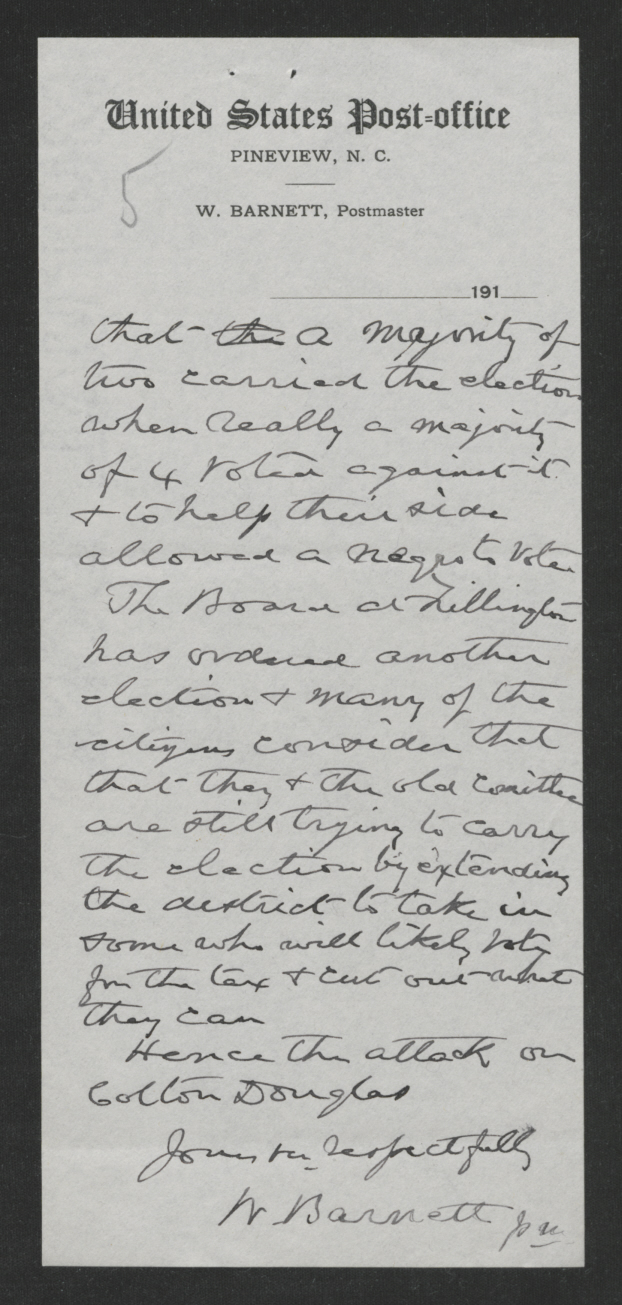 United States Post-office
PINEVIEW, N. C.
5
W. BARNETT, Postmaster
191
that the a majority of
two carried the election
when really a majority
of 4 voted against it
& to help their side
allowed a negro to vote
The Board at Lillington
has ordered another
election & many of the
citizens consider that
that they & the old comittee
are still trying to carry
the election by extending
the destrict to take in
some who will likely vote
for the tax & cut out what
they can
Hence the attack on
Colton Douglas
Yours respectfully
W. Barnett pm